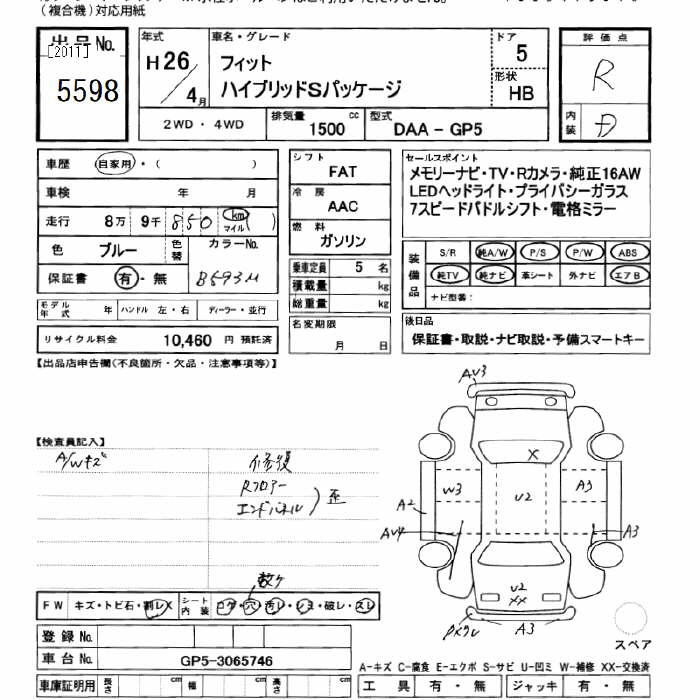 (複合機)対応用紙
出品No.
[201T]
5598
年式
H26/4月
車名・グレード
フィット
ハイブリッドSパッケージ
ドア
5
形状
HB
評価点
R
内装
D
2WD・4WD
排気量
1500
cc
型式
DAA-GP5
車歴
自家用・( )
車検 年 月
走行 8万 9千 850 km マイル ( )
色 ブルー
色替
カラーNo.
保証書 有・無
B593M
モデル年式 年
ハンドル 左・右
ディーラー・並行
リサイクル料金 10,460 円 預託済
シフト
FAT
冷房
AAC
燃料
ガソリン
乗車定員 5 名
積載量 kg
総重量 kg
名変期限
月 日
セールスポイント
メモリーナビ・TV・Rカメラ・純正16AW
LEDヘッドライト・プライバシーガラス
7スピードパドルシフト・電格ミラー
装備品
S/R 純A/W P/S P/W ABS
純TV 純ナビ 革シート 外ナビ エアB
ナビ型番:
後日品
保証書・取説・ナビ取説・予備スマートキー
【出品店申告欄(不良箇所・欠品・注意事項等)】
【検査員記入】
A/Wキズ
修復
Rフロアー
エンドパネル
歪
数ケ
FW キズ・トビ石・割レX
シート内装
コゲ・穴・汚レ・シミ・破レ・スレ
登録No.
車台No. GP5-3065746
車庫証明用 長さ cm 幅 cm 高さ cm
AV3
X
W3
U2
A3
A2
AV4
A3
U2
XX
A3
スペア
A-キズ C-腐食 E-エクボ S-サビ U-凹ミ W-補修 XX-交換済
工具 有・無
ジャッキ 有・無